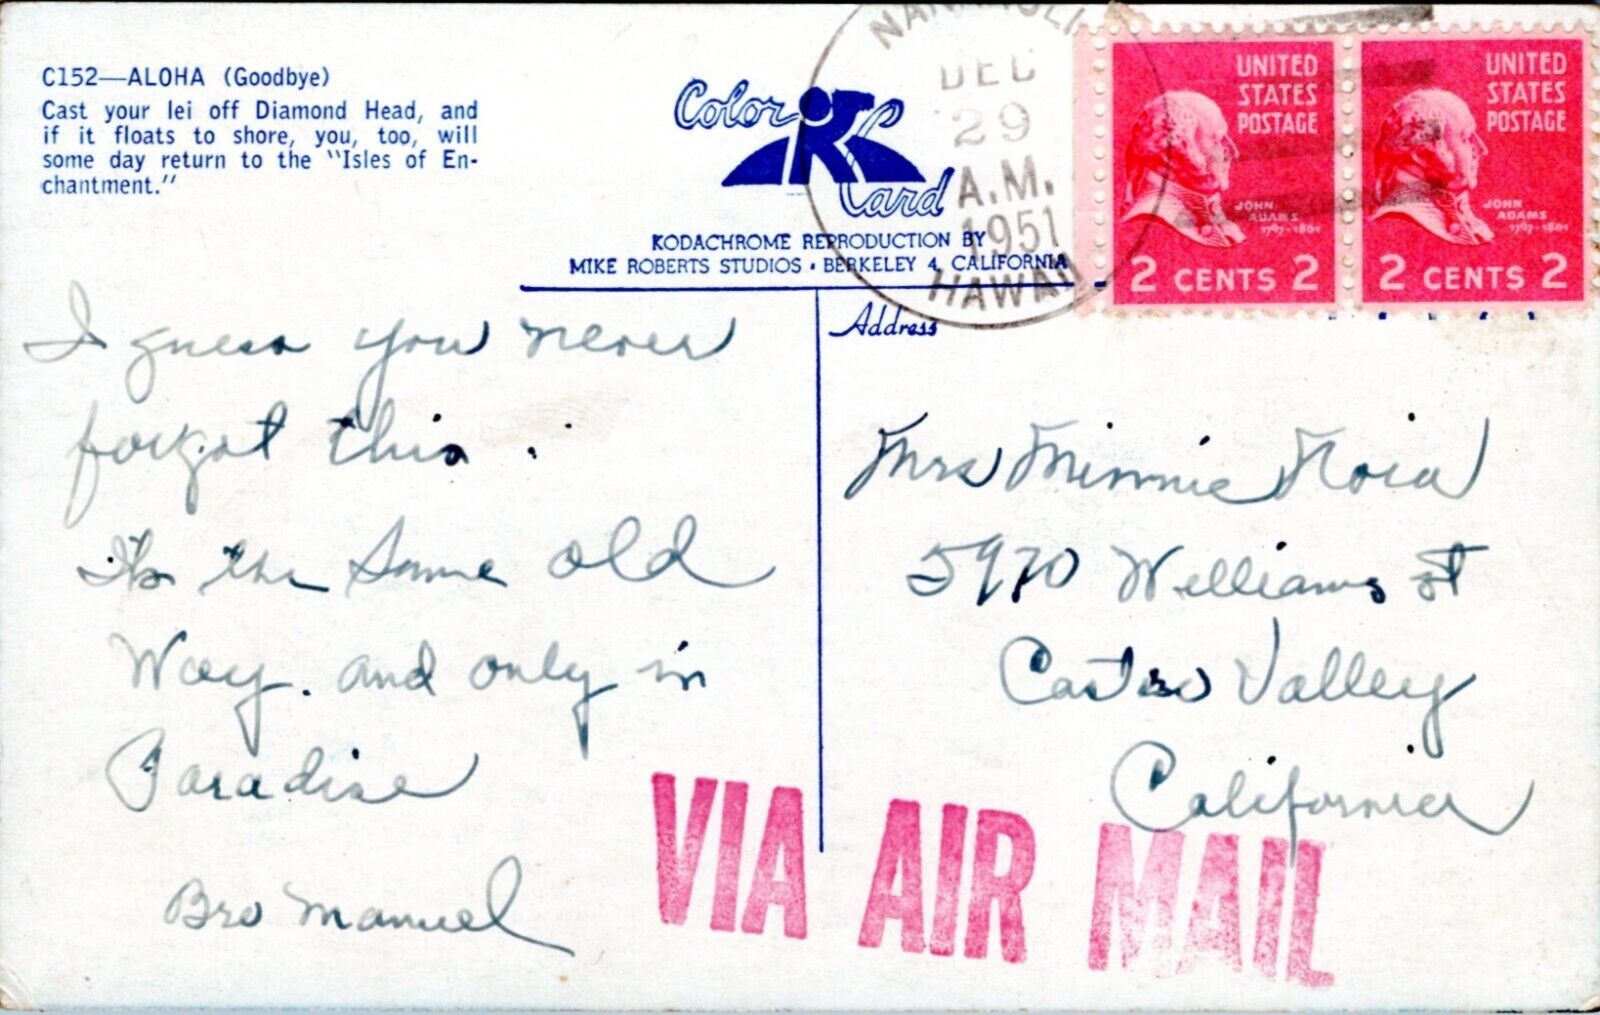 C152—ALOHA (Goodbye)
Cast your lei off Diamond Head, and
if it floats to shore, you, too, will
some day return to the "Isles of En-
chantment."
Color Card
KODACHROME REPRODUCTION BY
MIKE ROBERTS STUDIOS • BERKELEY 4, CALIFORNIA
DEC
29
A.M.
1951
HAWAII
UNITED
STATES
POSTAGE
JOHN
ADAMS
1797-1801
2 CENTS 2
UNITED
STATES
POSTAGE
JOHN
ADAMS
1797-1801
2 CENTS 2
I guess you never
forgot this.
Its the same old
Way. and only in
Paradise
Bro Manuel
Address
Mrs Minnie
5970 Williams st
Castro Valley
California
VIA AIR MAIL